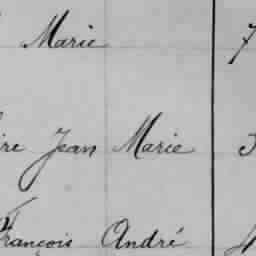 Marie 7
Jean Marie
François André 4